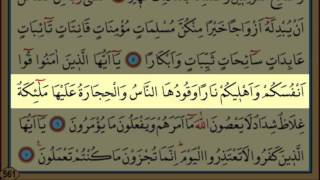 اَنْ يُبْدِلَهٗٓ اَزْوَاجًا خَيْرًا مِنْكُنَّ مُسْلِمَاتٍ مُؤْمِنَاتٍ قَانِتَاتٍ تَٓائِبَاتٍ
عَابِدَاتٍ سَٓائِحَاتٍ ثَيِّبَاتٍ وَاَبْكَارًا يَٓا اَيُّهَا الَّذ۪ينَ اٰمَنُوا قُٓوا
اَنْفُسَكُمْ وَاَهْل۪يكُمْ نَارًا وَقُودُهَا النَّاسُ وَالْحِجَارَةُ عَلَيْهَا مَلٰٓئِكَةٌ
غِلَاظٌ شِدَادٌ لَا يَعْصُونَ اللّٰهَ مَٓا اَمَرَهُمْ وَيَفْعَلُونَ مَا يُؤْمَرُونَ يَٓا اَيُّهَا
الَّذ۪ينَ كَفَرُوا لَا تَعْتَذِرُوا الْيَوْمَ اِنَّمَا تُجْزَوْنَ مَا كُنْتُمْ تَعْمَلُونَ
561